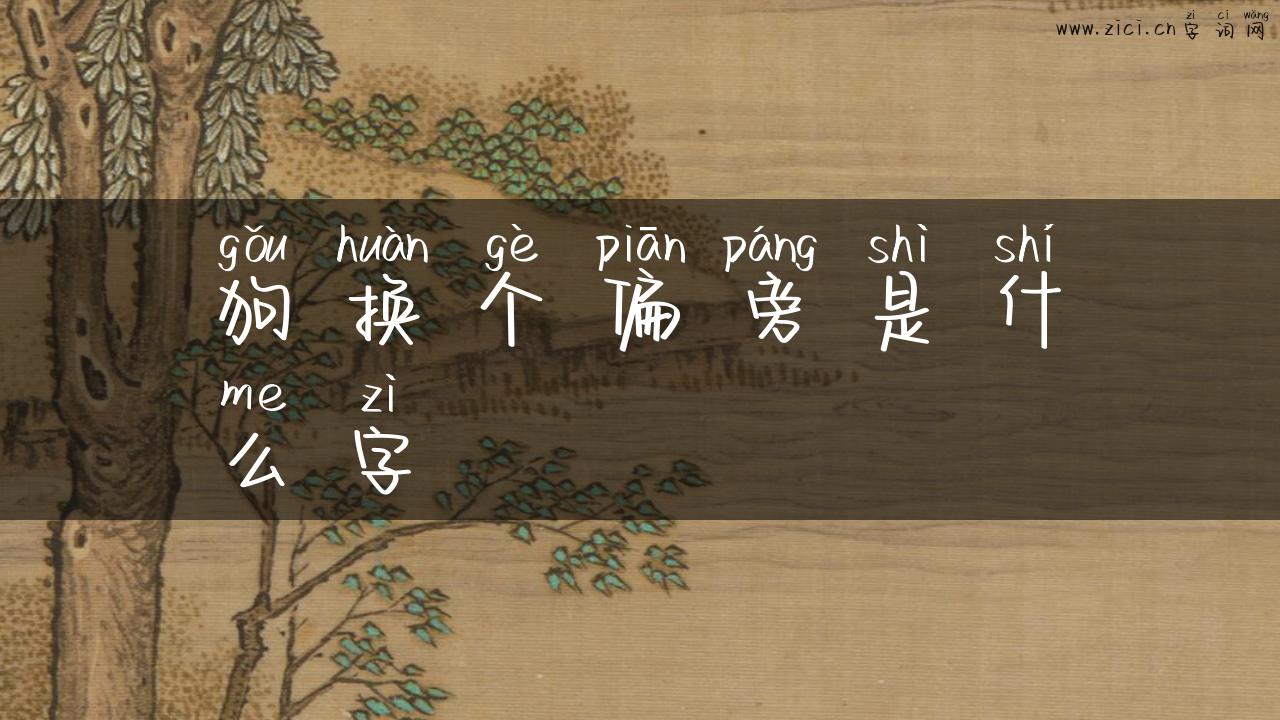 zì cí wǎng
www.zici.cn 字词网
gǒu huàn gè piān páng shì shí
狗换个偏旁是什
me zì
么字